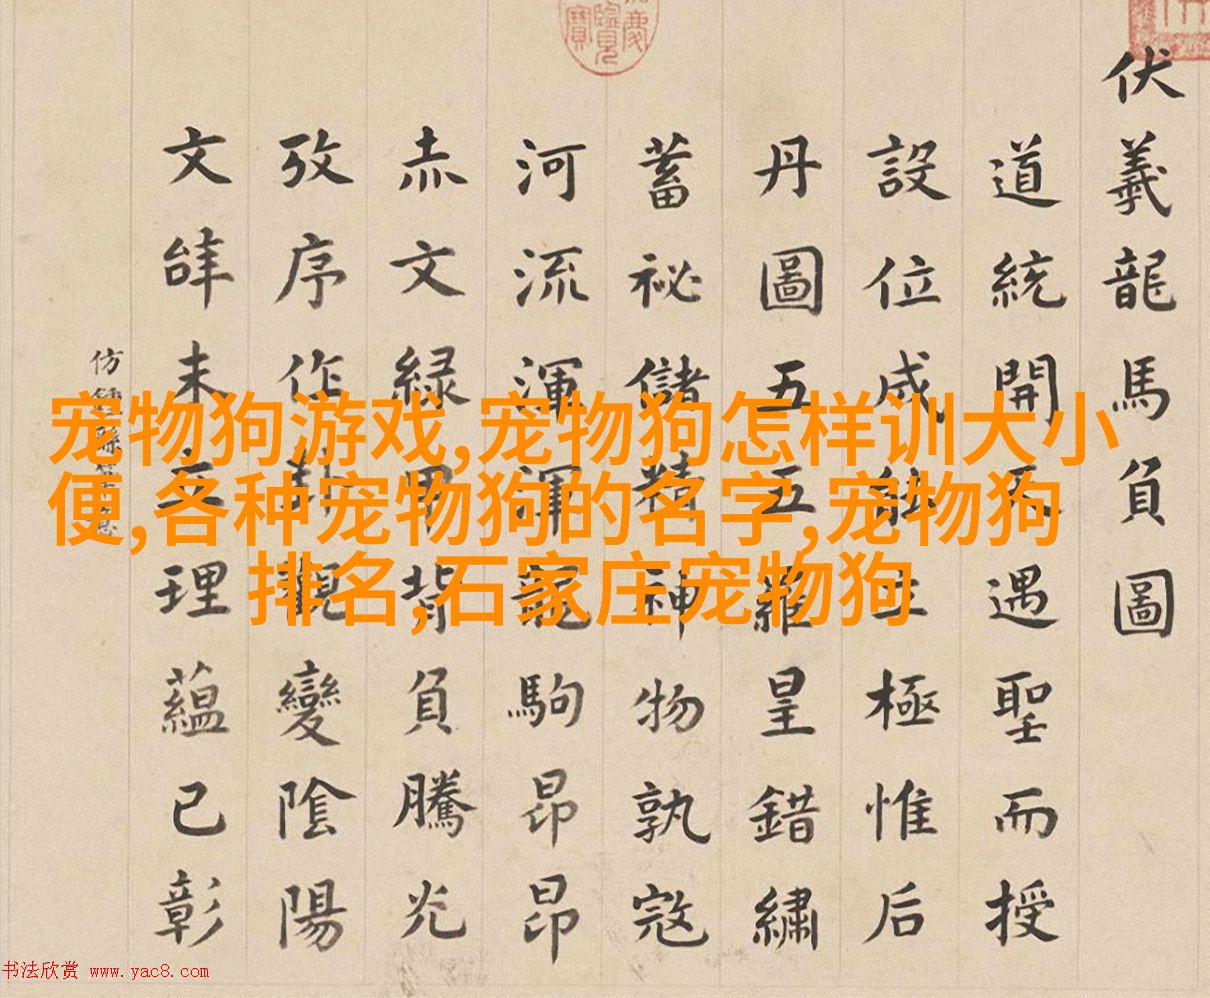 伏羲龍馬負圖
道統開天遇聖而授
設位成能極惟后
丹圖五五羅皇錯繡
蓄祕儲精神物孰寇
河流渾渾龍駒昂昂
赤文緑甲背負騰光
攷序作卦觀變陰陽
文未理蘊已彰
仿
慶覽寶
宠物狗游戏,宠物狗怎样训大小
便,各种宠物狗的名字,宠物狗
排名,石家庄宠物狗
书法欣赏 www.yac8.com